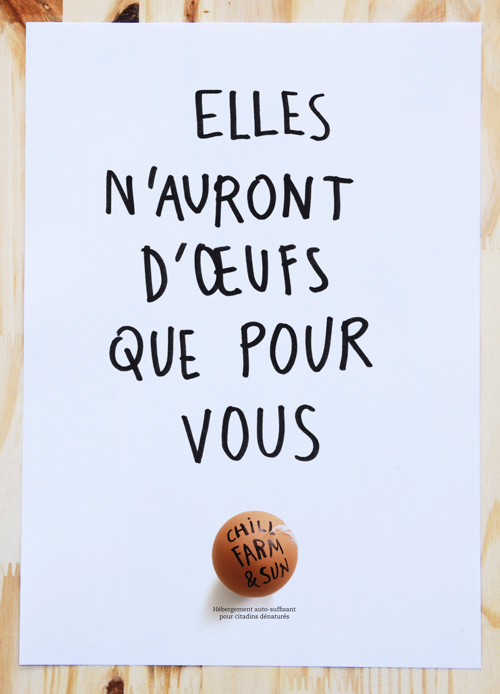 ELLES
N'AURONT
D'ŒUFS
QUE POUR
VOUS
CHILL
FARM
& SUN
Hébergement auto-suffisant
pour citadins dénaturés